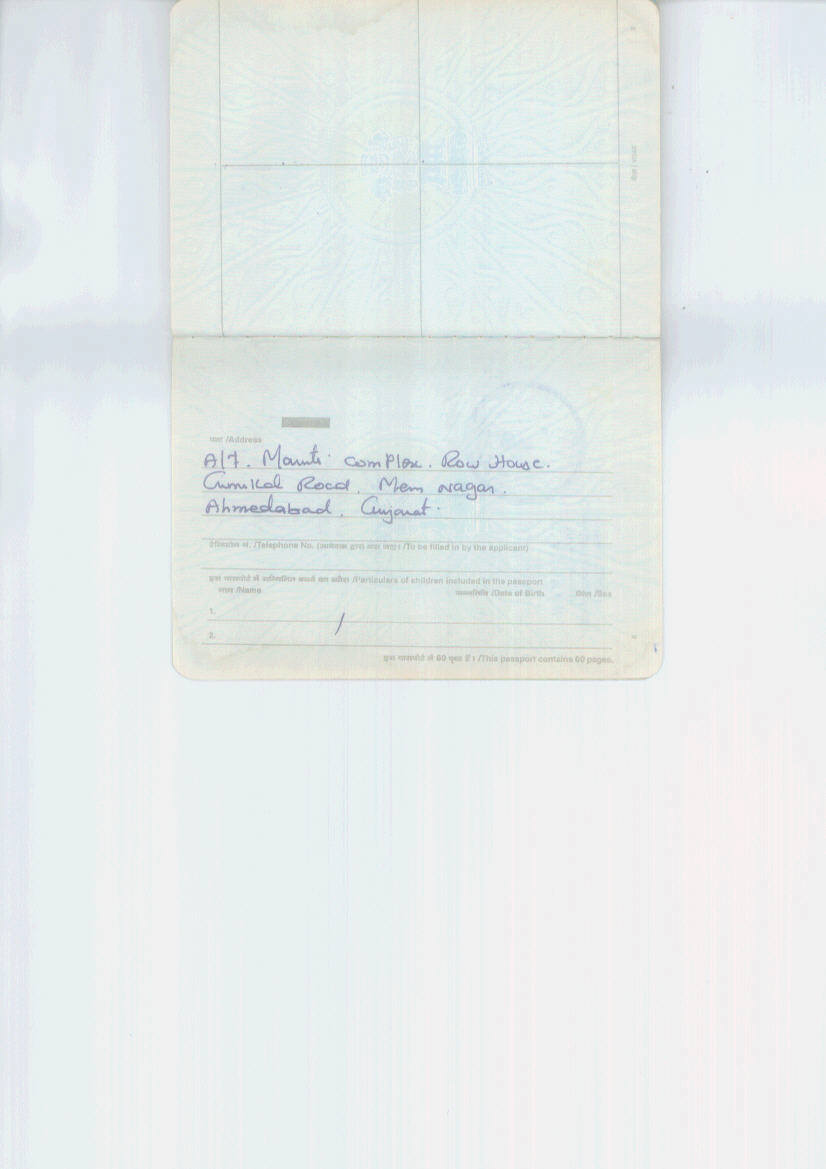 पता /Address
A/7. Maruti complex. Row House.
Gurukul Road. Mem nagar.
Ahmedabad. Gujarat.
टेलीफोन नं. /Telephone No. (आवेदक द्वारा भरा जाए) /To be filled in by the applicant)
इस पासपोर्ट में सम्मिलित बच्चों का ब्यौरा /Particulars of children included in the passport
नाम /Name जन्मतिथि /Date of Birth लिंग /Sex
1.
2.
इस पासपोर्ट में 60 पृष्ठ हैं। /This passport contains 60 pages.